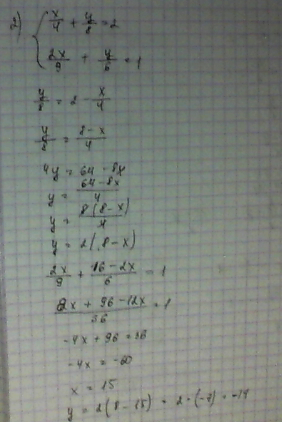 2) { x/4 + y/8 = 2
2x/9 + y/6 = 1
y/8 = 2 - x/4
y/8 = 2 - x/4
4y = 64 - 8x
y = 64 - 8x/4
y = 8(8 - x)/4
y = 2(8 - x)
2x/9 + 16 - 2x/6 = 1
8x + 96 - 12x/36 = 1
-4x + 96 = 36
-4x = -60
x = 15
y = 2(8 - 15) = 2 · (-7) = -14